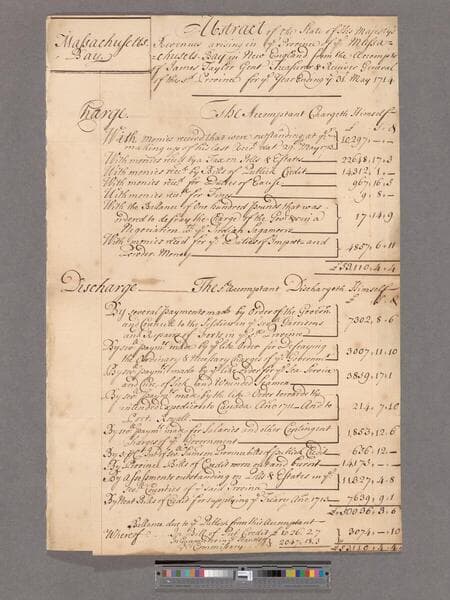 Massachusetts
Bay
Abstract of the State of His Majestys
Revenues arising in ye Province of ye Massa=
=chusets Bay in New England from the Accompts
of James Taylor Gent Treasurer & Receiver General
of the sd Province for ye Year Ending ye 31 May 1714
Charge. The Accomptant Chargeth Himself
£ s d
With monies receiv'd that were outstanding at ye
making up of his last Acct 29 May 1713 10297,,—,,—
With monies recd by a Tax on Polls & Estates 22648,,17,,3
With monies recd by Bills of Publick Credit 14312,,1,,—
With monies recd for Duties of Excise 967,,16,,5
With monies recd for 9,,8,,—
With the Ballance of One hundred pounds that was
ordered to defray the Charge of the
Negotiation 17,,14,,9
With Monies recd for ye Duties of Impost and
Powder Money 4857,,6,,11
£53110,,4,,4
Discharge The Accomptant Dischargeth Himself
£ s d
By several payments made by Order of the Govern
and Council to the Soldiers in ye Garrisons
and Repairs of Forts in ye Province 7302,,8,,6
By sev paymts made by ye like Order for Defraying
the Ordinary & Necessary Charges of ye Governmt 3007,,11,,10
By sev paymts made by ye like Order for ye Sea Service
and Cure of Sick and Wounded Seamen 3859,,17,,1
By sev paymts made by the like Order towards the
intended Expedition to Canada Ano 1711 And to
Port Royall 214,,7,,10
By sev paymts made for Salaries and other Contingent
Charges of ye Government 1853,,12,,6
By of the Publick Credit 656,,12,,—
By Provincial Bills of Credit worn out and burnt 14173,,—,,—
By Assessments outstanding on Polls & Estates in ye
Counties of ye said Province 11327,,4,,8
By Bills of Credit for supplying ye Treasy Ano 1713 7639,,9,,1
£50036,,3,,6
Ballance due to ye Publick from this Accomptant
Whereof In Bills of Pub Credit £1026,,2,,7
2047,,18,,3 3074,,—,,10
Commissary
£53110,,4,,4